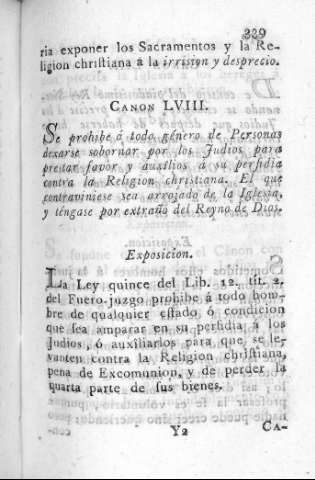 339
ria exponer los Sacramentos y la Re-
ligion christiana á la irrision y desprecio.
CANON LVIII.
Se prohibe á todo género de Personas
dexarse sobornar por los Judios para
prestar favor y auxîlios á su perfidia
contra la Religion christiana. El que
contraviniese sea arrojado de la Iglesia,
y téngase por extraño del Reyno de Dios.
Exposicion.
La Ley quince del Lib. 12. tit. 2.
del Fuero-juzgo prohibe á todo hom-
bre de qualquier eſtado ó condicion
que ſea amparar en su perfidia á los
Judios, ó auxîliarlos para que se le-
vanten contra la Religion chriſtiana,
pena de Excomunion, y de perder la
quarta parte de ſus bienes.
Y2 CA-